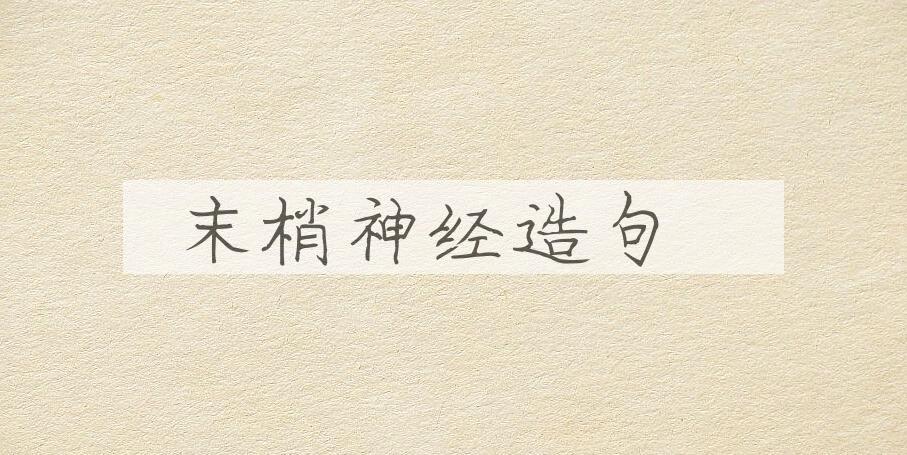 末梢神经造句